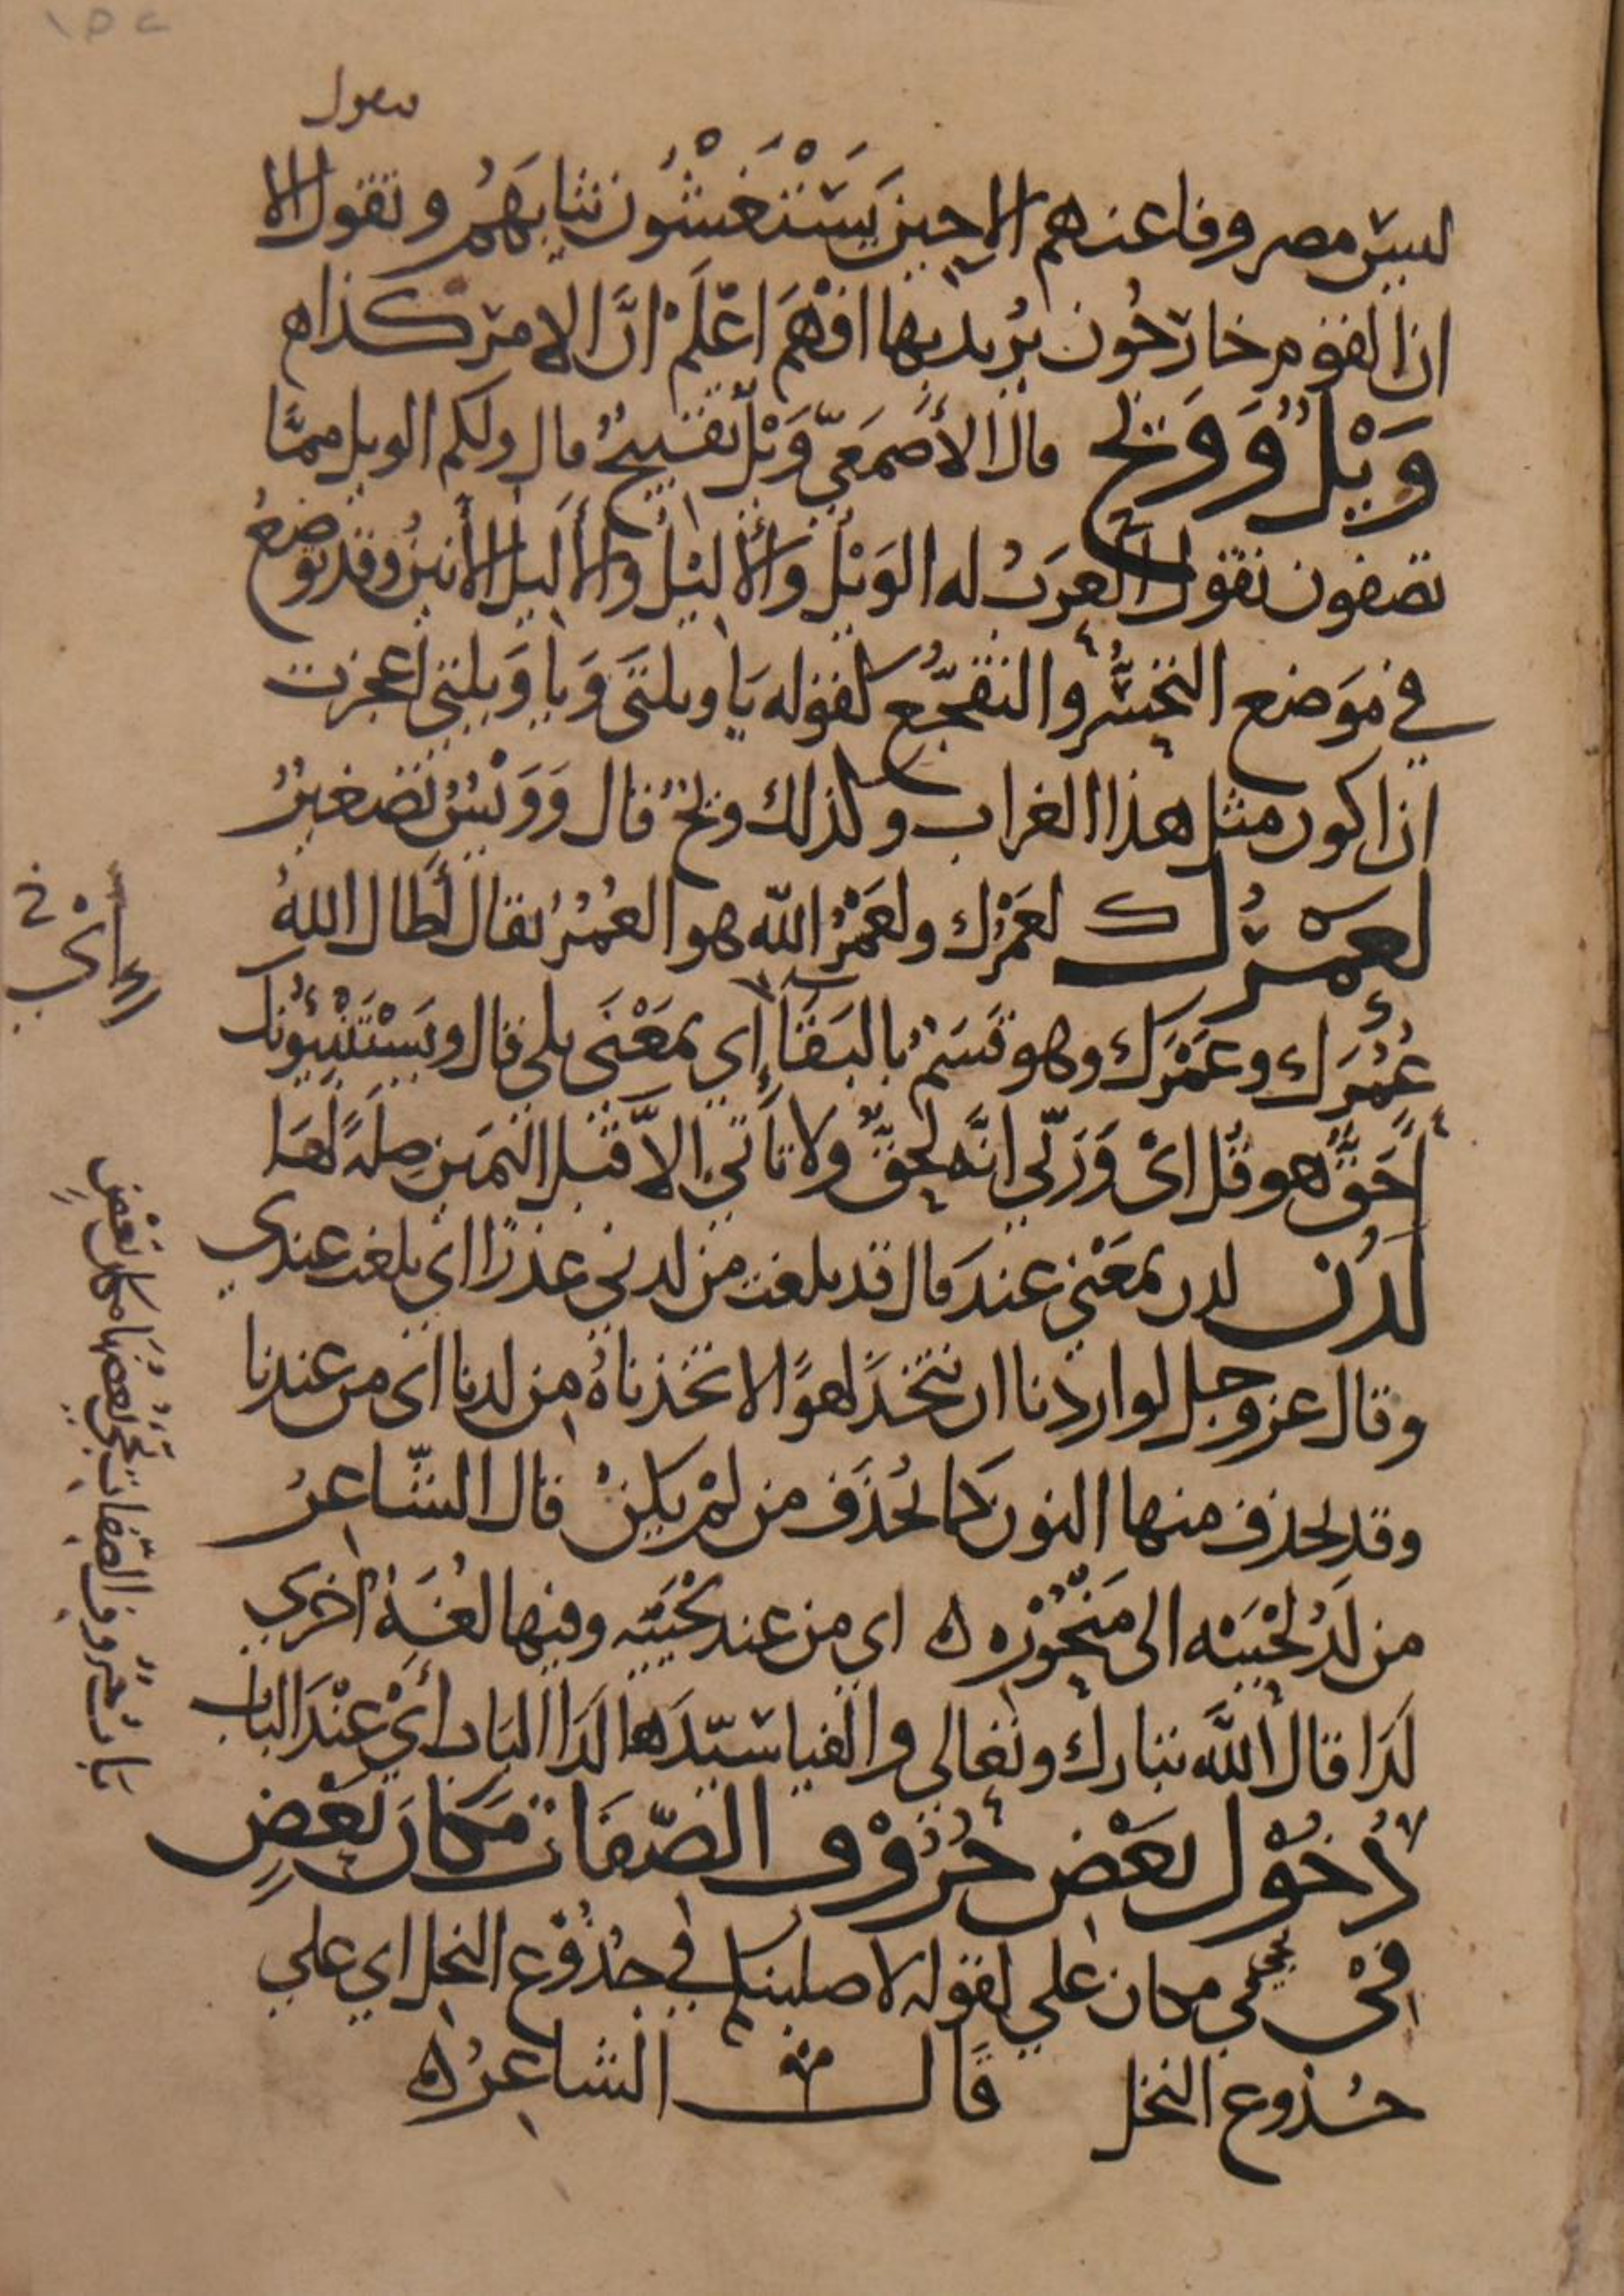 ىىىول
ليس مصروفا عنهم الا حين يستغشون ثيابهم وتقول الا
ان القوم خارجون يريد بها افهم اعلم ان الامر كذا ه
وَيْلٌ وَوَيْحٌ قال الأصمعي ويل تقبيح قال ولكم الويل مما
تصفون تقول العرب له الويل والأليل والأليل الأنين وقد توضع
في موضع التحسر والتفجع كقوله يا ويلتى ويا ويلتي اعجزت
ان اكون مثل هذا الغراب وكذلك ويح قال وويس تصغير
لعمرك لعمرك ولعمر الله هو العمر يقال أطال الله
عمرك وعمرك وهو قسم بالبقاء إي بمعنى بلى قال ويستنبئونك
أحق هو قل اي وربي انه لحق ولا تأتي الا قبل اليمين صلة لها
لدن لدن بمعنى عند قال قد بلغت من لدني عذرا اي بلغت عندي
وقال عز وجل لو اردنا ان نتخذ لهوا لاتخذناه من لدنا اي من عندنا
وقد يحذف منها النون كما تحذف من لم يكن قال الشاعر
من لد لحييه الى منحوره ه اي من عند لحييه وفيها لغة اخرى
لدا قال الله تبارك وتعالى والفيا سيدها لدا الباب أي عند الباب
دخول بعض حروف الصفات مكان بعض
في في مكان على لقوله لاصلبنكم في جذوع النخل اي على
جذوع النخل قال الشاعر ه
باب حروف الصفات يجي بعضها مكان بعض